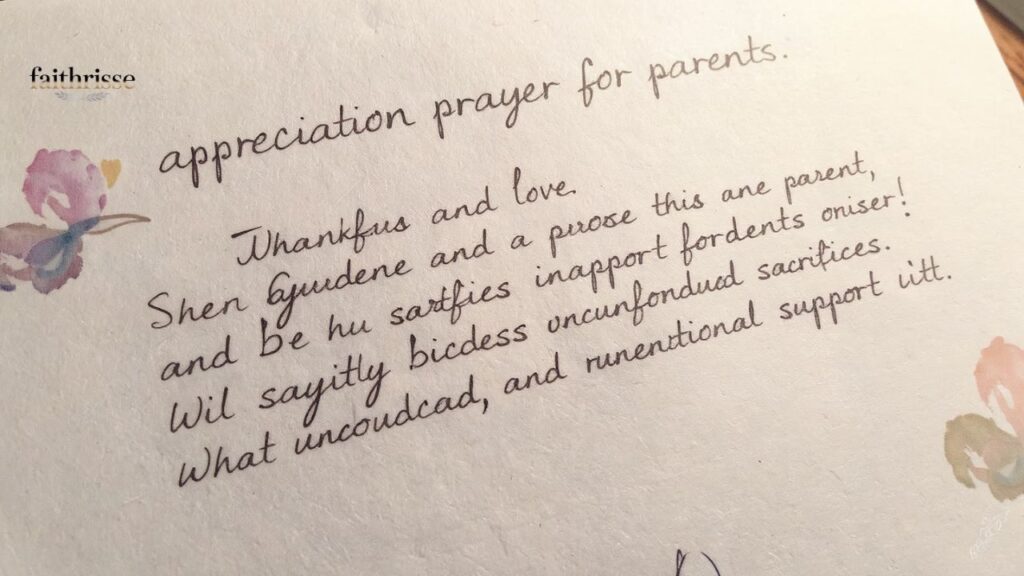 faithrisse
appreciation prayer for parents.
Thankfus and love.
Shen and a puose this ane parent,
and be hu sartfies inapport fordents oniser!
Wil sayitly bicdess uncunfondued sacrifices.
What uncoudcad, and runenstional support iitt.